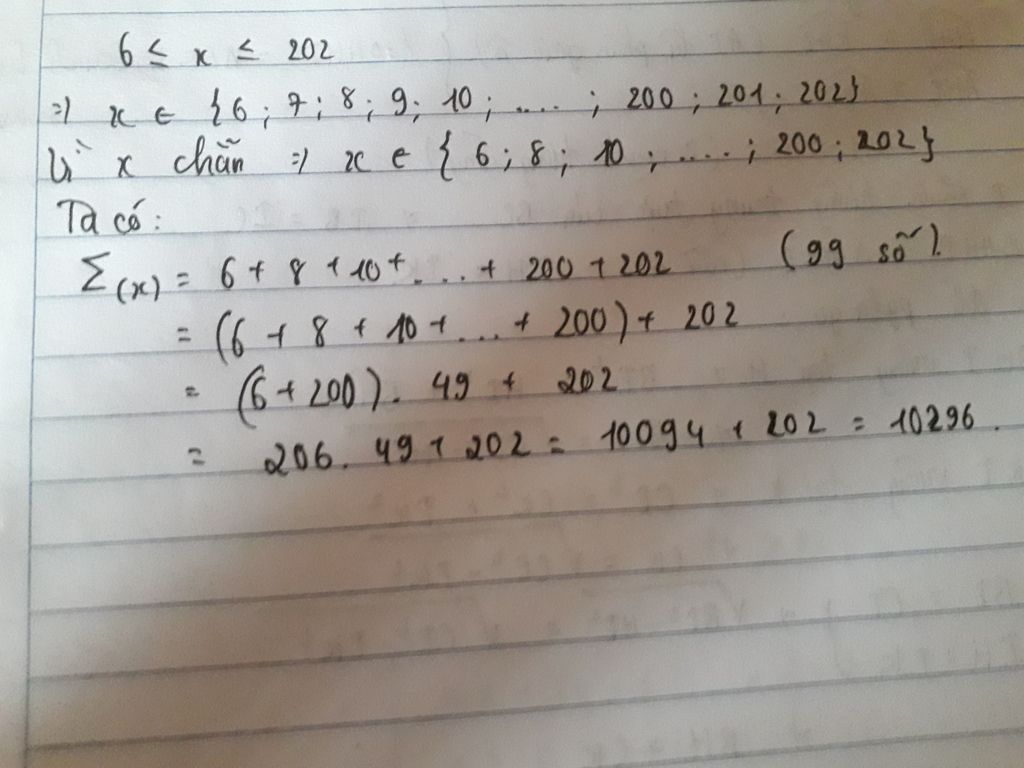 6 ≤ x ≤ 202
=) x ∈ {6 ; 7 ; 8 ; 9 ; 10 ; .... ; 200 ; 201 ; 202}
Vì x chẵn =) x ∈ { 6 ; 8 ; 10 ; .... ; 200 ; 202}
Ta có:
Σ(x) = 6 + 8 + 10 + ... + 200 + 202 (99 số).
= (6 + 8 + 10 + ... + 200) + 202
= (6 + 200) . 49 + 202
= 206 . 49 + 202 = 10094 + 202 = 10296.